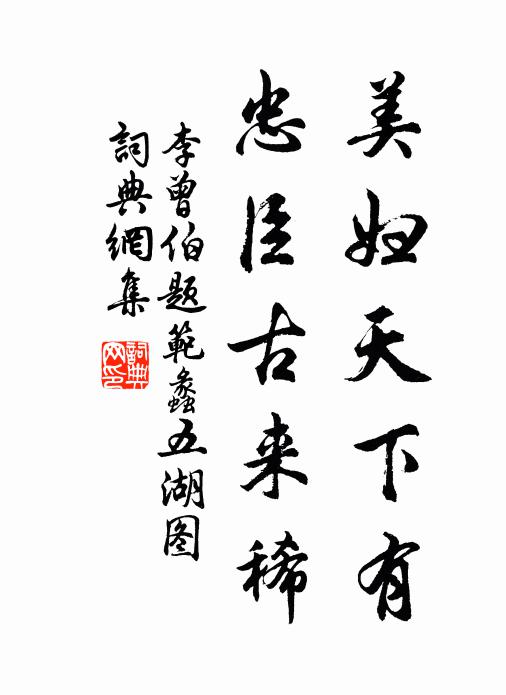 美妇天下有
忠臣古来稀
李曾伯题範蠡五湖图
詞典網集
詞典
网印